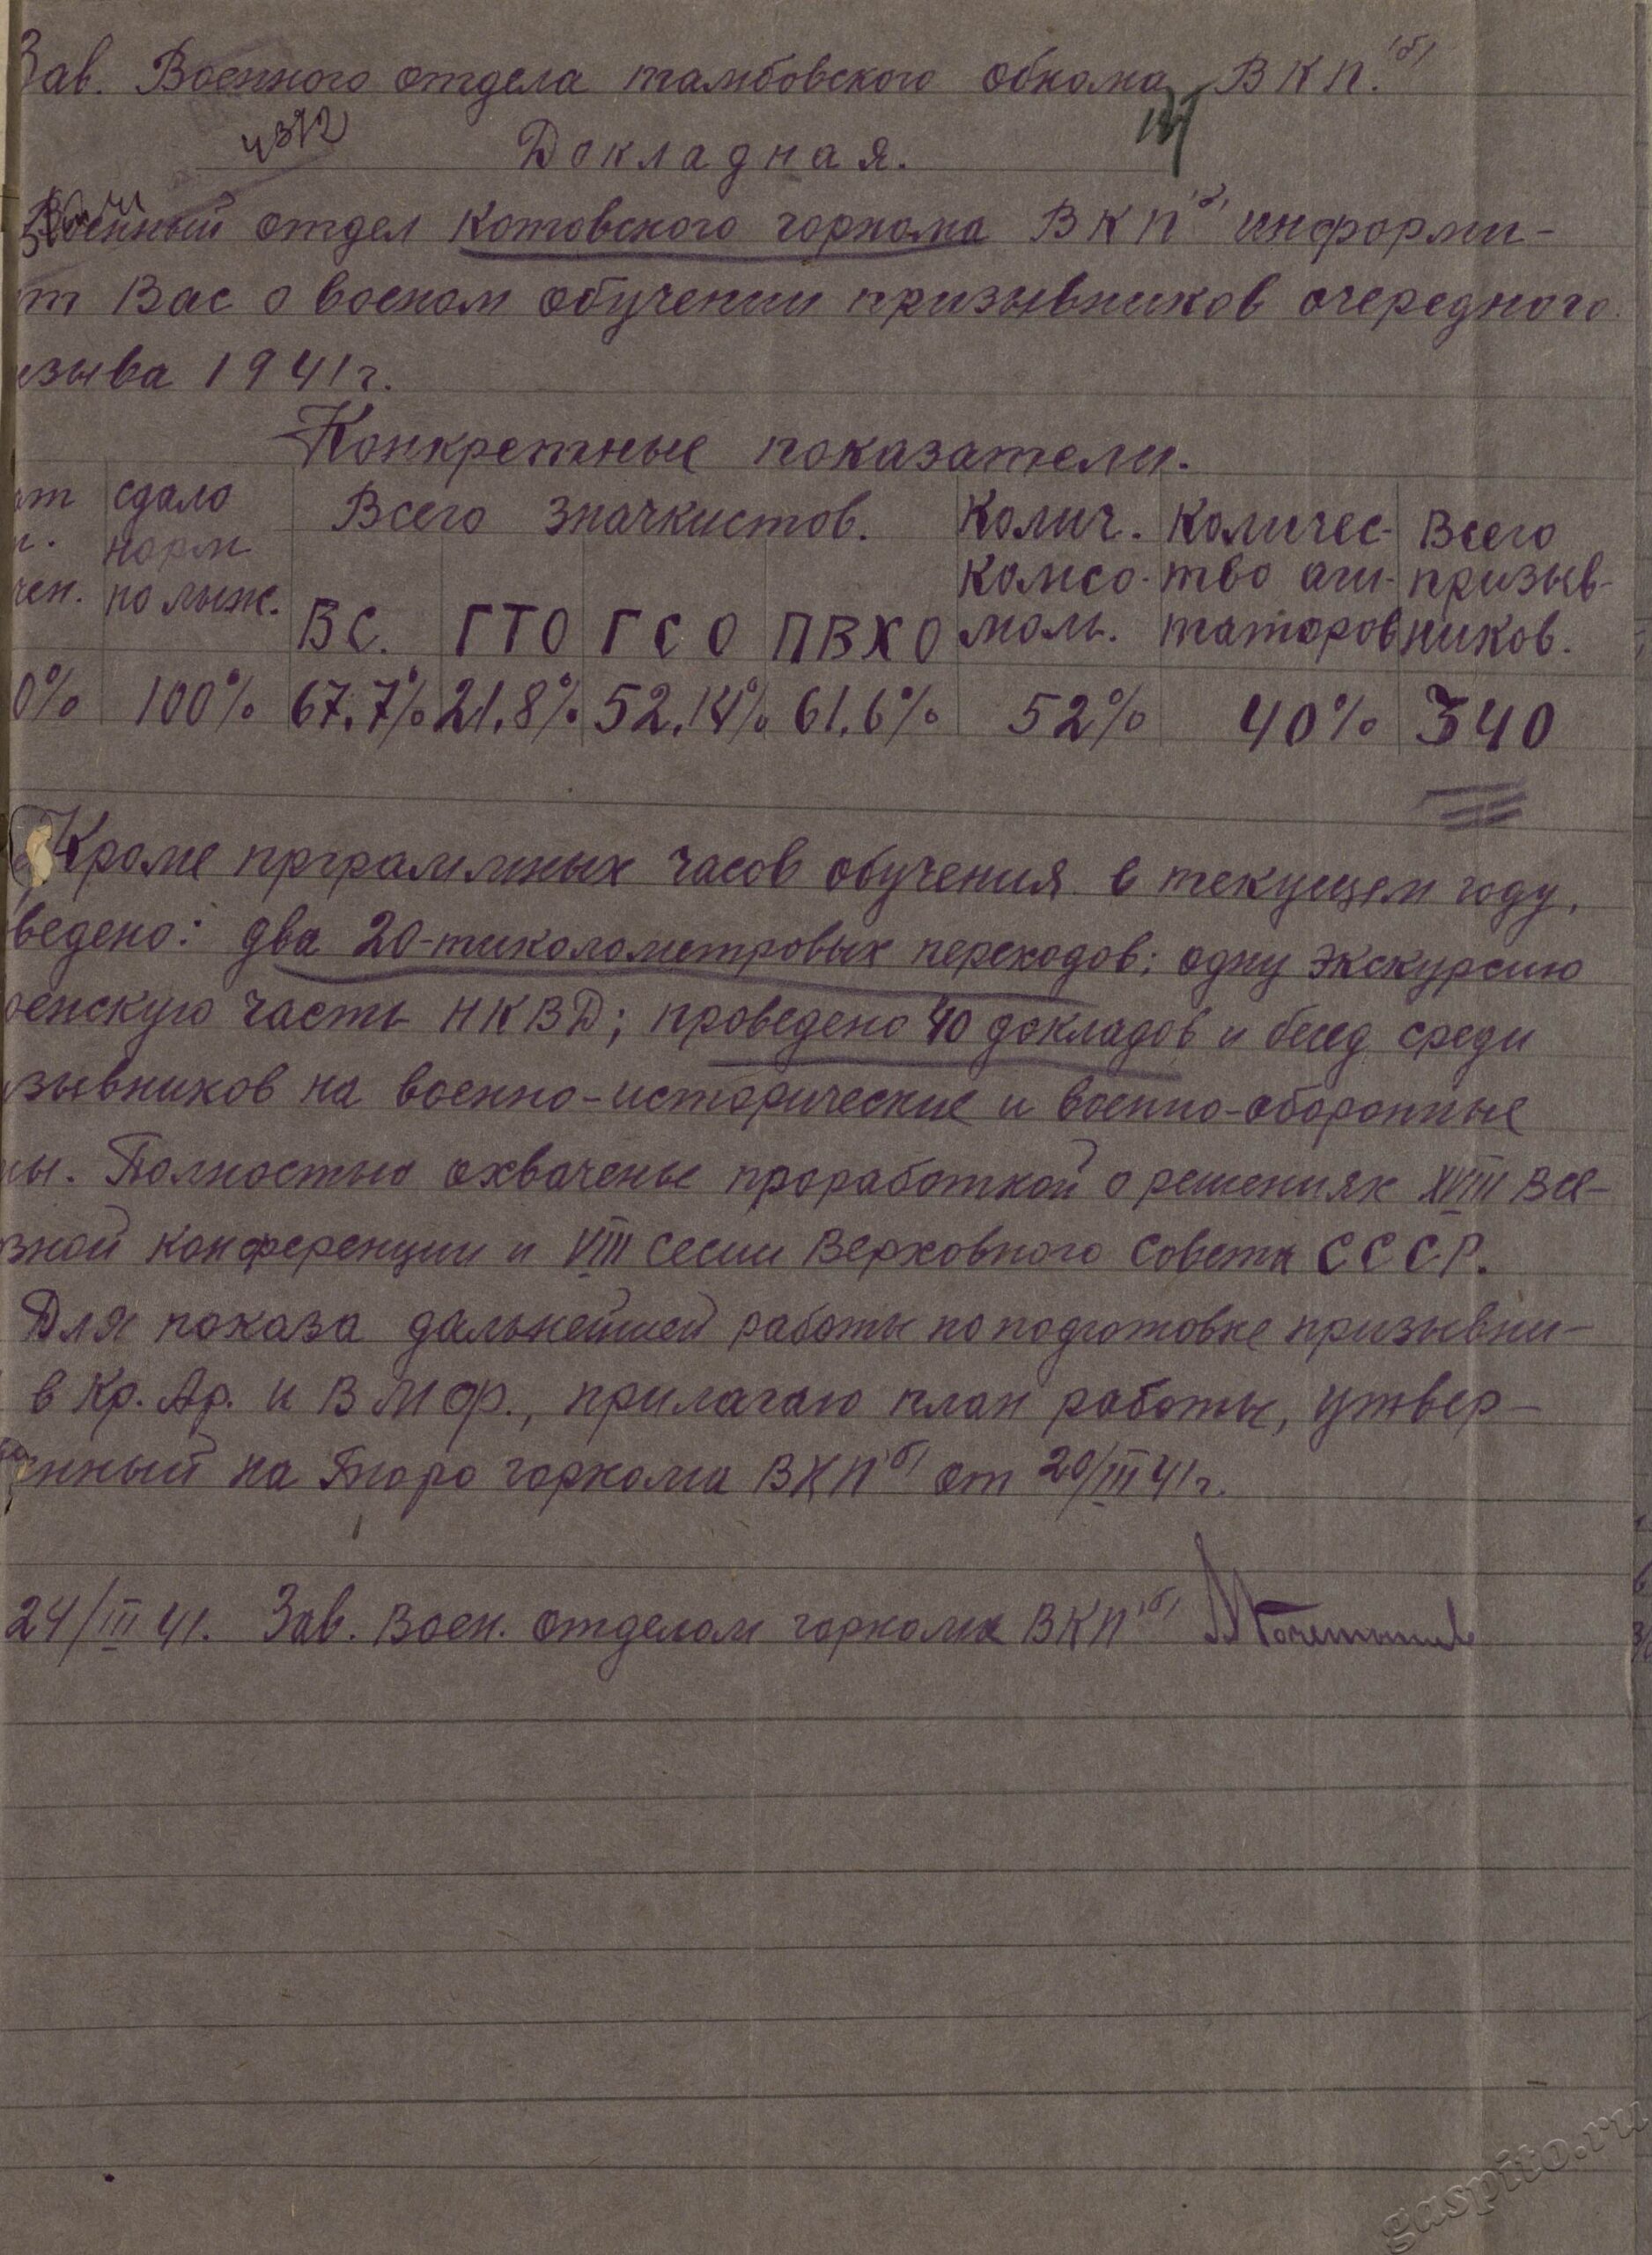 Зав. Военного отдела тамбовского обкома ВКП.(б)
4372
Докладная.
Военный отдел Котовского горкома ВКП(б) информи-
т Вас о военом обучении призывников очередного
зыва 1941 г.
Конкретные показатели.
сдало норм по лыж. Всего значкистов. Колич. комсо-моль. Количес-тво аги-таторов Всего призыв-ников.
чен. ВС. ГТО ГСО ПВХО
0% 100% 67.7% 21.8% 52.14% 61.6% 52% 40% 340
Кроме прграммных часов обучения в текущем году,
ведено: два 20-тиколометровых переходов; одну экскурсию
енскую часть НКВД; проведено 40 докладов и бесед среди
зывников на военно-исторические и военно-оборонные
ы. Полностью охвачены проработкой о решениях XVIII Все-
зной конференции и VIII сесии Верховного Совета СССР.
Для показа дальнейшей работы по подготовке призывни-
в Кр. Ар. и ВМФ., прилагаю план работы, утвер-
нный на Бюро горкома ВКП(б) от 20/III 41 г.
24/III 41. Зав. Воен. отделом горкома ВКП(б)
gaspito.ru